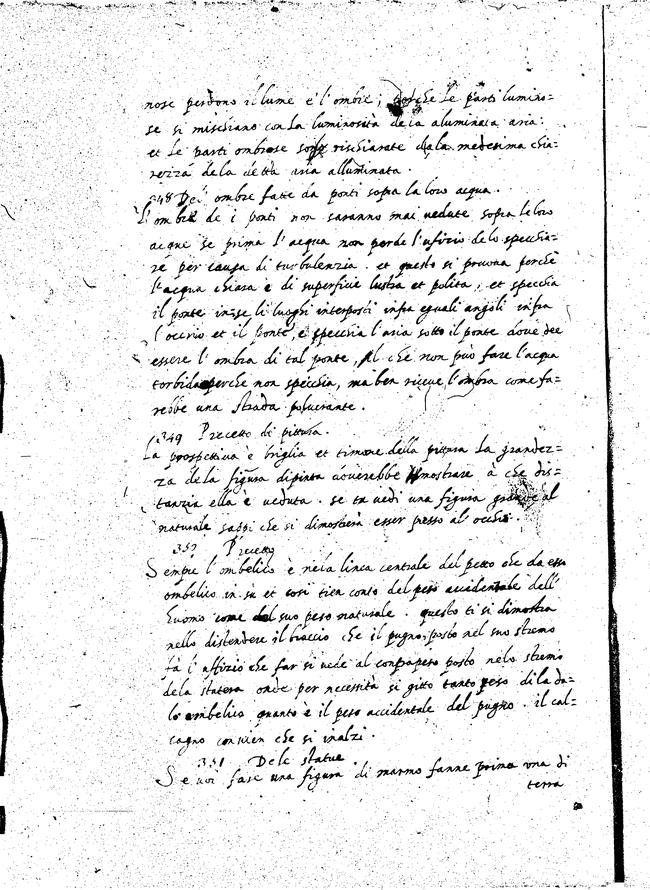 nose perdono il lume e l'ombre; perche le parti lumino=
se si mischiano con la luminosità de la aluminata aria.
et le parti ombrose sono rischiarate dala medesima chia=
rezza dela detta aria alluminata.
348 Del ombre fatte da ponti sopra la loro acqua.
L'ombre de i ponti non saranno mai vedute sopra le loro
acque se prima l'acqua non perde l'ufizio de lo specchia=
re per causa di turbulenzia. et questo si prouoa perchè
l'acqua chiara è di superficie lustra et polita, et specchia
il ponte in se li luoghi interposti infra eguali angoli infra
l'occhio et il ponte, e specchia l'aria sotto il ponte doue dee
essere l'ombra di tal ponte, il che non può fare l'acqua
torbida perche non specchia, ma ben riceue l'ombra come fa=
rebbe una strada poluerante.
349 Precetto di pittura.
La prospettiua è briglia et timone della pittura la grandez=
za de la figura dipinta douerebbe mostrare à che dis=
tanzia ella è veduta. se tu vedi una figura grande al
naturale sappi che si dimostera esser presso al occhio.
350 Precetto
Sempre l'ombelico è ne la linea centrale del petto che da esso
ombelico in sù et cosi tien conto del peso accidentale dell'
huomo come del suo peso naturale. questo ti si dimostra
nello distendere il braccio che il pugno, posto nel suo stremo
fà l'uffizio che far si vede al contrapeso posto nelo stremo
dela statera onde per necessità si gitta tanto peso di la da=
lo ombelico quanto è il peso accidentale del pugno. il cal=
cagno conuien che si inalzi.
351 Dele statue.
Se uoi fare una figura di marmo fanne prima una di
terra